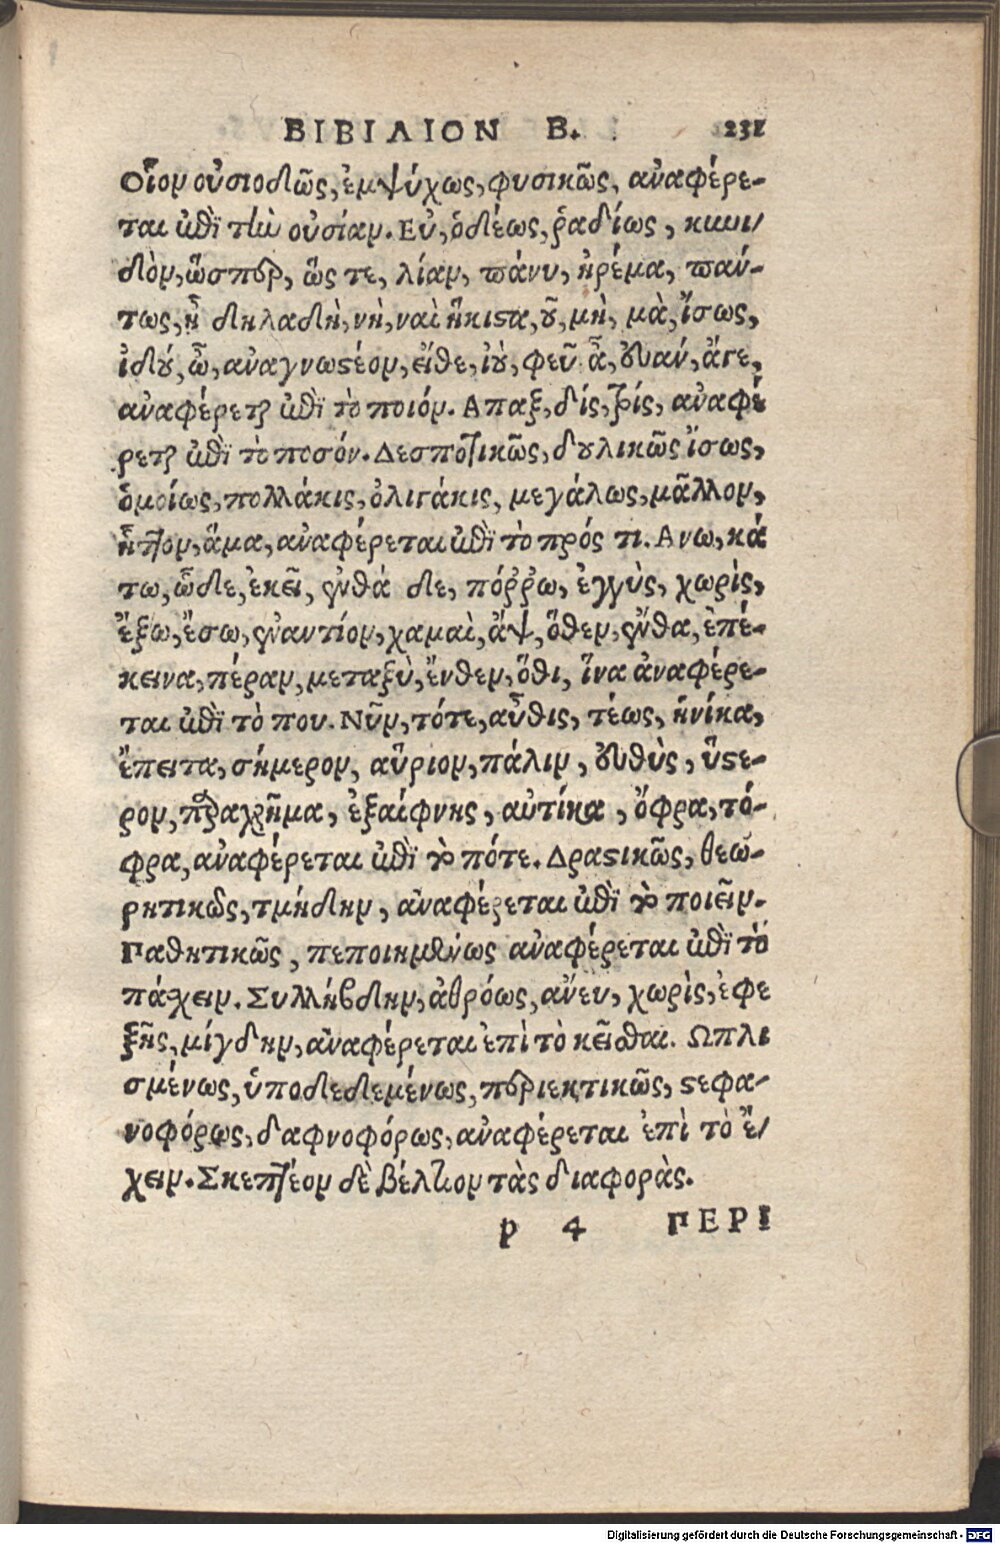 ΒΙΒΙΛΙΟΝ Β. 231
Οἷον οὐσιοδῶς, ἐμψύχως, φυσικῶς, ἀναφέρε-
ται ἐπὶ τὴν οὐσίαν. Εὖ, ὀδέως, ῥαδίως, κυνι/
δὸν, ὥσπερ, ὥς τε, λίαν, πάνυ, ἠρέμα, πάν-
τως, ἦ δηλαδὴ, νὴ, ναὶ ἥκιστα, οὔ, μὴ, μὰ, ἴσως,
ἰδού, ὦ, ἀναγνωστέον, εἴθε, ἰοὺ, φεῦ ἆ, εὐάν, ἄγε,
ἀναφέρεται ἐπὶ τὸ ποιόν. Απαξ, δίς, τρίς, ἀναφέ
ρεται ἐπὶ τὸ ποσόν. Δεσποτικῶς, δουλικῶς ἴσως,
ὁμοίως, πολλάκις, ὀλιγάκις, μεγάλως, μᾶλλον,
ἧττον, ἅμα, ἀναφέρεται ἐπὶ τὸ πρός τι. Ανω, κά
τω, ὧδε, ἐκεῖ, ἐνθά δε, πόῤῥω, ἐγγὺς, χωρὶς,
ἔξω, ἔσω, ἐναντίον, χαμαὶ, ἄψ, ὅθεν, ἔνθα, ἐπέ-
κεινα, πέραν, μεταξὺ, ἔνθεν, ὅθι, ἵνα ἀναφέρε-
ται ἐπὶ τὸ που. Νῦν, τότε, αὖθις, τέως, ἡνίκα,
ἔπειτα, σήμερον, αὔριον, πάλιν, εὐθὺς, ὕστε-
ρον, παραχρῆμα, ἐξαίφνης, αὐτίκα, ὄφρα, τό-
φρα, ἀναφέρεται ἐπὶ τὸ πότε. Δραστικῶς, θεω-
ρητικῶς, τμήδην, ἀναφέρεται ἐπὶ τὸ ποιεῖν.
Παθητικῶς, πεποιημένως ἀναφέρεται ἐπὶ τὸ
πάσχειν. Συλλήβδην, ἀθρόως, ἄνευ, χωρὶς, ἐφε
ξῆς, μίγδην, ἀναφέρεται ἐπὶ τὸ κεῖσθαι. Ωπλι
σμένως, ὑποδεδεμένως, περιεκτικῶς, στεφα-
νοφόρως, δαφνοφόρως, ἀναφέρεται ἐπὶ τὸ ἔ/
χειν. Σκεπτέον δὲ βέλτιον τὰς διαφοράς.
p 4 ΠΕΡΙ
Digitalisierung gefördert durch die Deutsche Forschungsgemeinschaft - DFG